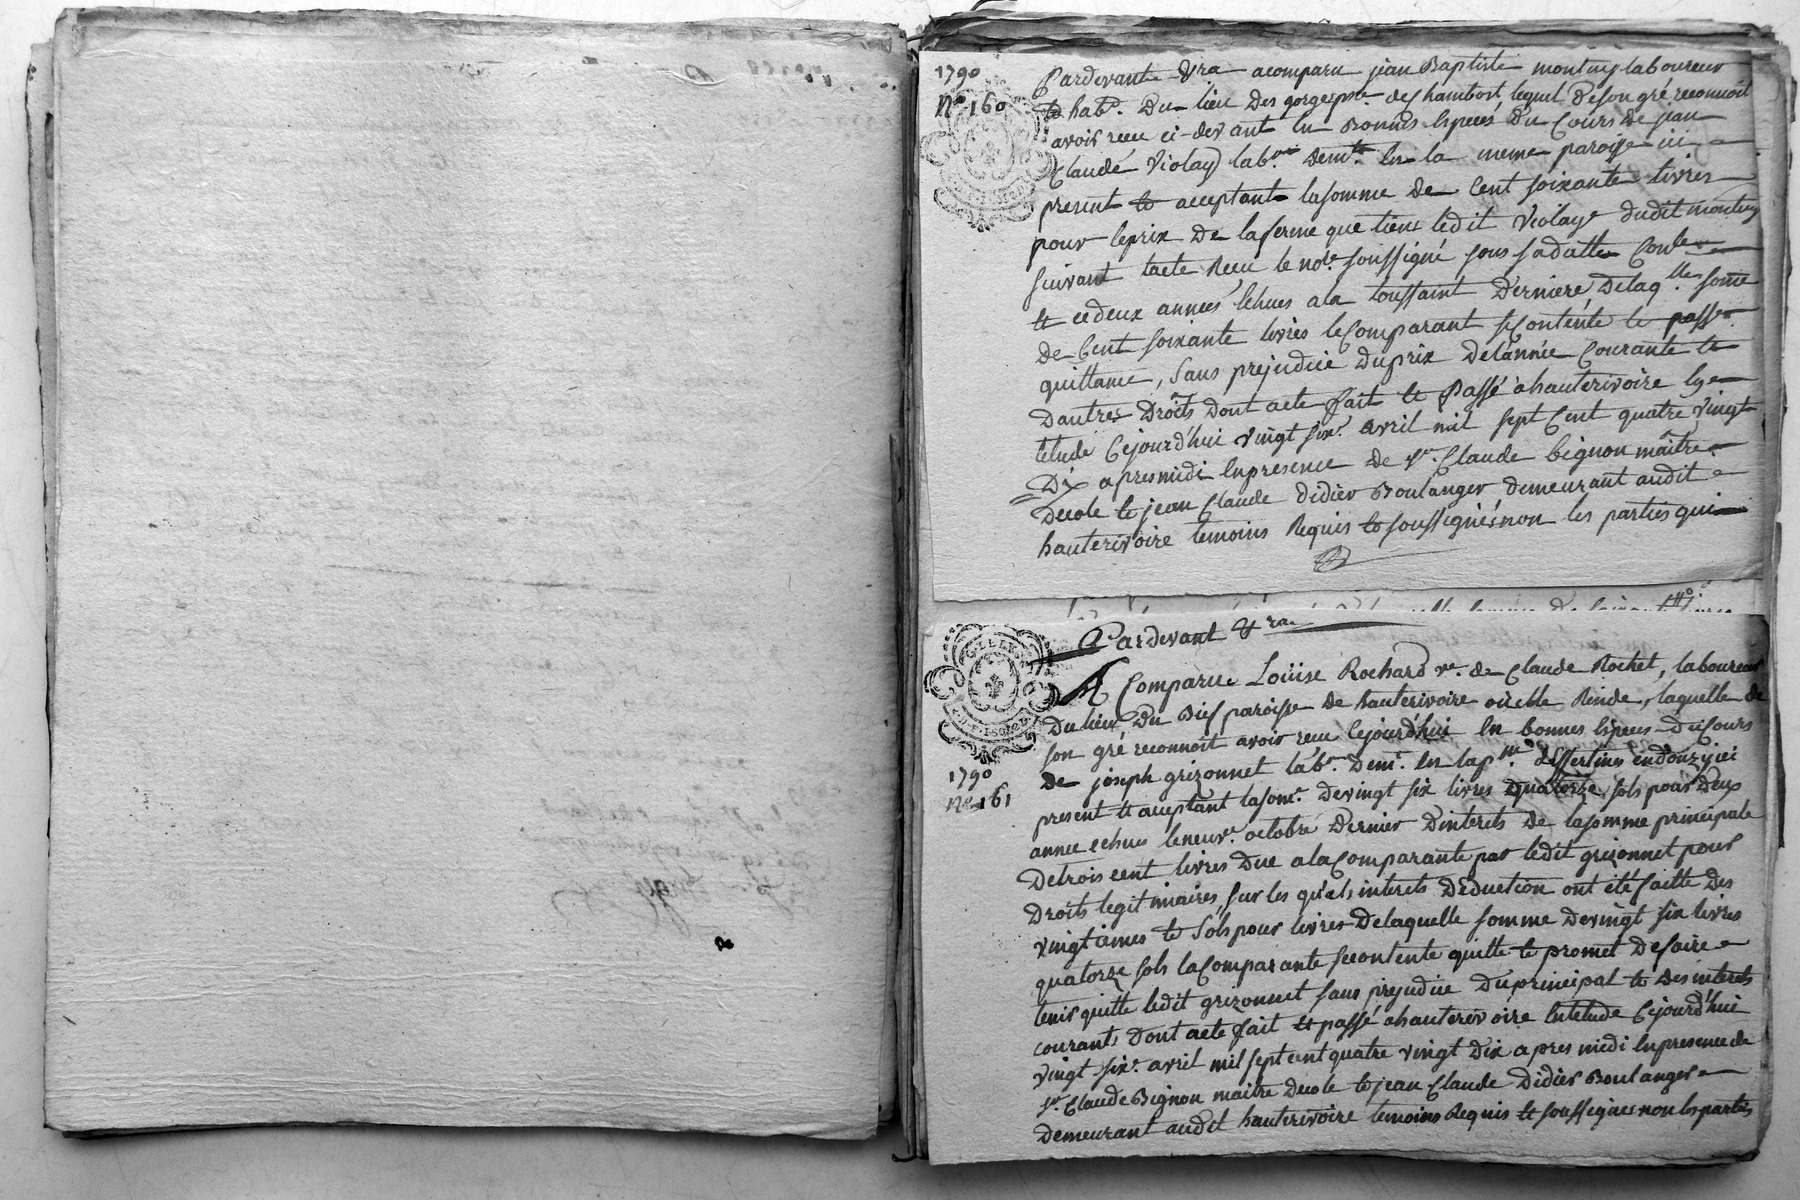 1790
N.° 160
Pardevant &ra a comparu jean Baptiste montuy laboureur
& hab.t Du lieu Des gorges p.sse de chambost, lequel de son gré reconnoit
avoir recu ci-devant En Bonnes Especes Du Cours De jean
Claude Violay lab.r Dem.t En la meme paroisse ici
present & acceptant la somme De Cent soixante livres
pour le prix De la ferme que tien ledit Violay dudit montuy
suivant l'acte Recu le no.re soussigné sous sa datte
& ce deux années Echues a la toussaint Derniere De laq.lle some
De Cent soixante livres le Comparant se contente & passe
quittance, sans prejudice Du prix De l'année Courante &
D'autres Droits Dont acte fait & Passé a hauterivoire En
l'etude Cejourd'hui vingt six.e avril mil sept Cent quatre vingt
Dix apres midi En presence De s.r Claude bignon maître
Decole & jean Claude Didier Boulanger demeurant audit
hauterivoire temoins Requis & soussignés non les parties qui
Pardevant &ra
A Comparue Loüise Rochard v.e de Claude Rochet, laboureur
Du lieu Du Bief paroisse De hauterivoire où elle Reside, laquelle de
son gré reconnoit avoir recu Cejourd'hui En bonnes Especes Du Cours
De joseph grizonnet lab.r Dem.t En la p.sse d'Essertines en donzy ici
1790
N.° 161
present & acceptant la som.e De vingt six livres quatorze sols pour Deux
année echues le neuv.e octobre Dernier D'interets De la somme principale
De trois cent livres Due a la Comparante par ledit grizonnet pour
Droits legitimaires, sur les quels interets Déduction ont été faitte Des
vingtiemes & sols pour livres De laquelle somme De vingt six livres
quatorze sols la Comparante se contente quitte & promet De faire
tenir quitte ledit grizonnet sans prejudice Du principal & Des interets
courants Dont acte fait & passé a hauterivoire En l'etude Cejourd'hui
vingt six.e avril mil sept cent quatre vingt Dix apres midi En presence de
s.r Claude Bignon maitre Decole & jean Claude Didier Boulanger
Demeurant audit hauterivoire temoins Requis & soussignés non les parties